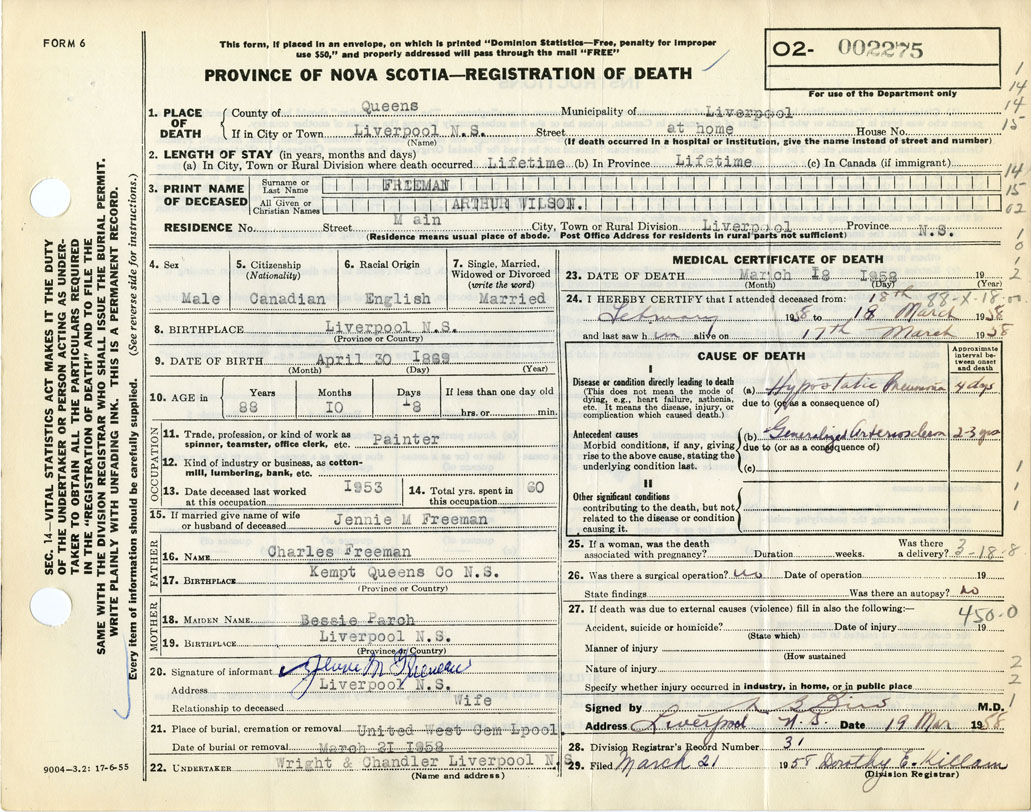 FORM 6
This form, if placed in an envelope, on which is printed "Dominion Statistics—Free, penalty for improper
use $50," and properly addressed will pass through the mail "FREE"
PROVINCE OF NOVA SCOTIA—REGISTRATION OF DEATH
02- 002275
For use of the Department only
SEC. 14—VITAL STATISTICS ACT MAKES IT THE DUTY
OF THE UNDERTAKER OR PERSON ACTING AS UNDER-
TAKER TO OBTAIN ALL THE PARTICULARS REQUIRED
IN THE "REGISTRATION OF DEATH" AND TO FILE THE
SAME WITH THE DIVISION REGISTRAR WHO SHALL ISSUE THE BURIAL PERMIT.
WRITE PLAINLY WITH UNFADING INK. THIS IS A PERMANENT RECORD.
Every item of information should be carefully supplied. (See reverse side for instructions.)
1. PLACE OF DEATH County of Queens Municipality of Liverpool
If in City or Town Liverpool N.S. Street at home House No.
(Name) (If death occurred in a hospital or institution, give the name instead of street and number)
2. LENGTH OF STAY (in years, months and days)
(a) In City, Town or Rural Division where death occurred Lifetime (b) In Province Lifetime (c) In Canada (if immigrant)
3. PRINT NAME OF DECEASED Surname or Last Name FREEMAN
All Given or Christian Names ARTHUR WILSON.
RESIDENCE No. Street Main City, Town or Rural Division Liverpool Province N.S.
(Residence means usual place of abode. Post Office Address for residents in rural parts not sufficient)
4. Sex Male
5. Citizenship (Nationality) Canadian
6. Racial Origin English
7. Single, Married, Widowed or Divorced (write the word) Married
8. BIRTHPLACE Liverpool N.S.
(Province or Country)
9. DATE OF BIRTH April 30 1869
(Month) (Day) (Year)
10. AGE in Years 88 Months 10 Days 18 If less than one day
hrs. or min.
OCCUPATION
11. Trade, profession, or kind of work as spinner, teamster, office clerk, etc. Painter
12. Kind of industry or business, as cotton-mill, lumbering, bank, etc.
13. Date deceased last worked at this occupation 1953
14. Total yrs. spent in this occupation 60
15. If married give name of wife or husband of deceased Jennie M Freeman
FATHER
16. NAME Charles Freeman
17. BIRTHPLACE Kempt Queens Co N.S.
(Province or Country)
MOTHER
18. MAIDEN NAME Bessie Parch
19. BIRTHPLACE Liverpool N.S.
(Province or Country)
20. Signature of informant Jennie M Freeman
Address Liverpool N.S.
Relationship to deceased Wife
21. Place of burial, cremation or removal United West Cem Lpool
Date of burial or removal March 21 1958
22. UNDERTAKER Wright & Chandler Liverpool N.S.
(Name and address)
9004—3.2: 17-6-55
MEDICAL CERTIFICATE OF DEATH
23. DATE OF DEATH March 18 1958 19
(Month) (Day) (Year)
24. I HEREBY CERTIFY that I attended deceased from: 18th 88-X-18-00
February 1958 to 18 March 1958
and last saw him alive on 17th March 1958
CAUSE OF DEATH
Approximate interval between onset and death
I
Disease or condition directly leading to death
(This does not mean the mode of dying, e.g., heart failure, asthenia, etc. It means the disease, injury, or complication which caused death.)
(a) Hypostatic Pneumonia 4 days
due to (or as a consequence of)
Antecedent causes
Morbid conditions, if any, giving rise to the above cause, stating the underlying condition last.
(b) Generalized Arteriosclerosis 2-3 yrs
due to (or as a consequence of)
(c)
II
Other significant conditions
contributing to the death, but not related to the disease or condition causing it.
25. If a woman, was the death associated with pregnancy? Duration weeks. Was there a delivery? 3-18-8
26. Was there a surgical operation? no Date of operation 19
State findings Was there an autopsy? no
27. If death was due to external causes (violence) fill in also the following:— 450-0
Accident, suicide or homicide? Date of injury 19
(State which)
Manner of injury
(How sustained
Nature of injury
Specify whether injury occurred in industry, in home, or in public place
Signed by M.D.
Address Liverpool N.S. Date 19 Mar 1958
28. Division Registrar's Record Number 31
29. Filed March 21 1958 Dorothy E. Killam
(Division Registrar)
1
14
14
15
14
15
02
1
0
1
2
1
1
1
2
2
1